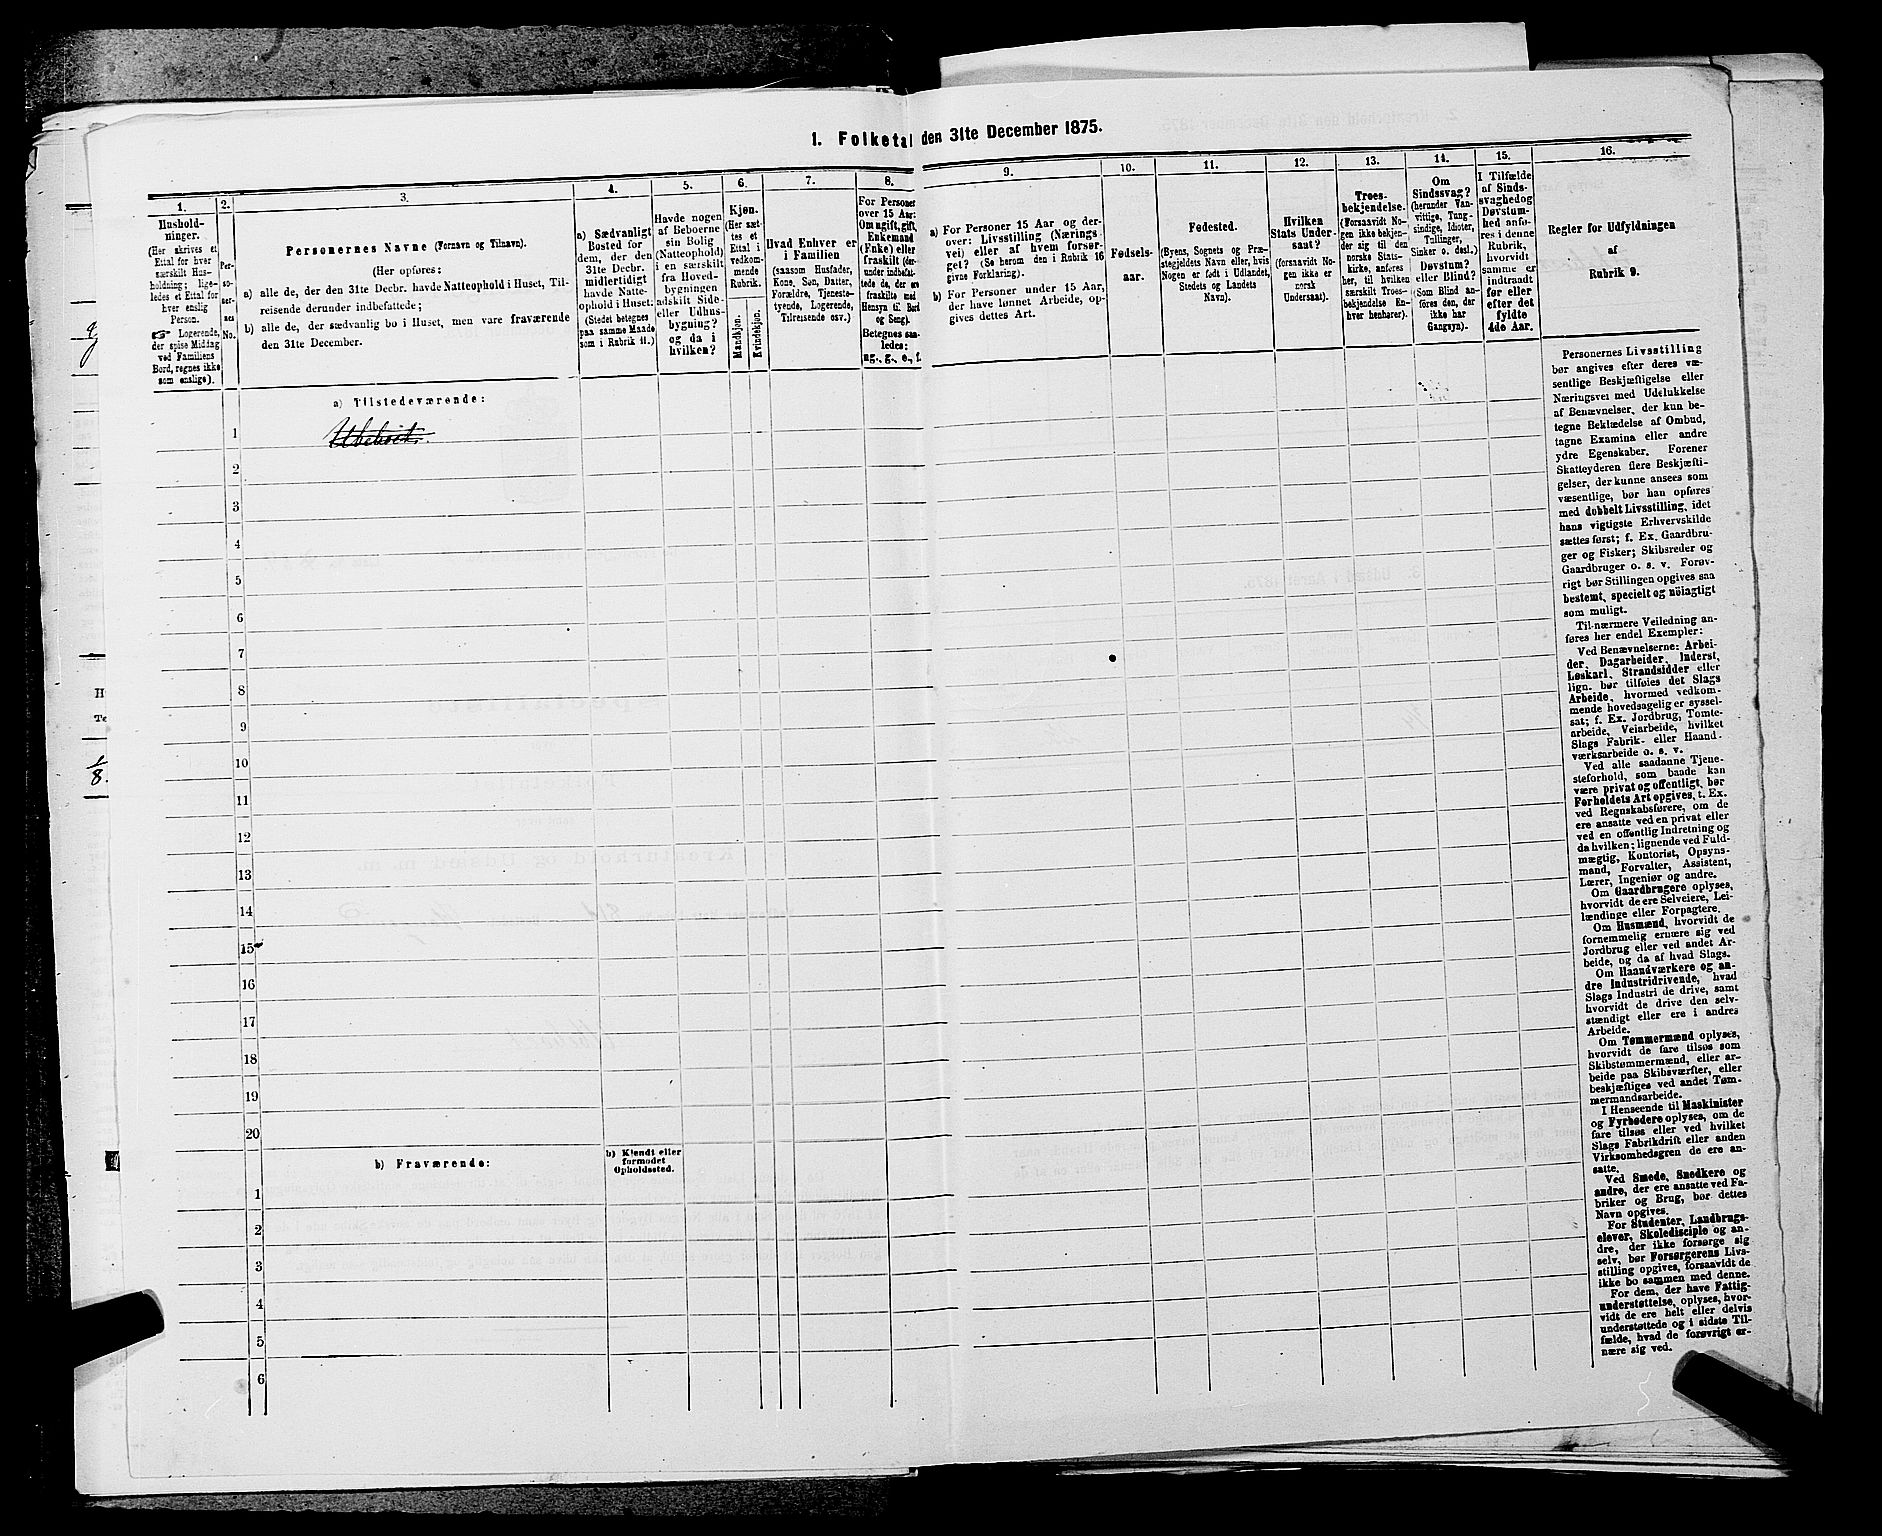 1. Folketal den 31te December 1875.
1.
2.
3.
4.
5.
6.
7.
8.
9.
10.
11.
12.
13.
14.
15.
16.
Hushold-
ninger.
(Her skrives et
Ettal for hver
særskilt Hus-
holdning; lige-
ledes et Ettal for
hver enslig
Person.
☞ Logerende,
der spise Middag
ved Familiens
Bord, regnes ikke
som enslige).
Per-
so-
ner-
nes
No.
Personernes Navne (Fornavn og Tilnavn).
(Her opføres:
a) alle de, der den 31te Decbr. havde Natteophold i Huset, Til-
reisende derunder indbefattede;
b) alle de, der sædvanlig bo i Huset, men vare fraværende
den 31te December.
a) Sædvanligt
Bosted for
dem, der den
31te Decbr.
midlertidigt
havde Natte-
ophold i Huset.
(Stedet betegnes
paa samme Maade
som i Rubrik 11.)
Havde nogen
af Beboerne
sin Bolig
(Natteophold)
i en særskilt
fra Hoved-
bygningen
adskilt Side-
eller Udhus-
bygning?
og da i
hvilken?
Kjøn.
(Her sæt-
tes et
Ettal i
vedkom-
mende
Rubrik.
Mandkjøn.
Kvindekjøn.
Hvad Enhver er
i Familien
(saasom Husfader,
Kone, Søn, Datter,
Forældre, Tjeneste-
tyende, Logerende,
Tilreisende osv.)
For Personer
over 15 Aar:
Om ugift, gift,
Enkemand
(Enke) eller
fraskilt (der-
under indbefat-
tede de, der ere
fraskilte med
Hensyn til Bord
og Seng).
Betegnes saa-
ledes:
ug., g., e., f.
a) For Personer 15 Aar og der-
over: Livsstilling (Nærings-
vei) eller af hvem forsør-
get? (Se herom den i Rubrik 16
givne Forklaring).
b) For Personer under 15 Aar,
der have lønnet Arbeide, op-
gives dettes Art.
Fødsels-
aar.
Fødested.
(Byens, Sognets og Præ-
stegjeldets Navn eller, hvis
Nogen er født i Udlandet,
Stedets og Landets
Navn).
Hvilken
Stats Under-
saat?
(forsaavidt No-
gen ikke er
norsk
Undersaat).
Troes-
bekjendelse.
(Forsaavidt No-
gen ikke bekjen-
der sig til den
norske Stats-
kirke, anføres
her, til hvilken
særskilt Troes-
bekjendelse En-
hver henhører).
Om
Sindssvag?
(herunder Van-
vittige, Tung-
sindige, Idioter,
Tullinger,
Sinker o. desl.)
Døvstum?
eller Blind?
(Som Blind an-
føres den, der
ikke har
Gangsyn).
I Tilfælde
af Sinds-
svaghed og
Døvstum-
hed anfø-
res i denne
Rubrik,
hvorvidt
samme er
indtraadt
før eller
efter det
fyldte
4de Aar.
Regler for Udfyldningen
af
Rubrik 9.
a) Tilstedeværende:
1
Ubeboet.
2
3
4
5
6
7
8
9
10
11
12
13
14
15
16
17
18
19
20
b) Fraværende:
b) Kjendt eller
formodet
Opholdssted.
1
2
3
4
5
6
Personernes Livsstilling
bør angives efter deres væ-
sentlige Beskjæftigelse eller
Næringsvei med Udelukkelse
af Benævnelser, der kun be-
tegne Beklædelse af Ombud,
tagne Examina eller andre
ydre Egenskaber. Forener
Skatteyderen flere Beskjæfti-
gelser, der kunne ansees som
væsentlige, bør han opføres
med dobbelt Livsstilling, idet
hans vigtigste Erhvervskilde
sættes først; f. Ex. Gaardbru-
ger og Fisker; Skibsreder og
Gaardbruger o. s. v. Forøv-
rigt bør Stillingen opgives saa
bestemt, specielt og nöiagtigt
som muligt.
Til nærmere Veiledning an-
føres her endel Exempler:
Ved Benævnelserne: Arbei-
der, Dagarbeider, Inderst,
Løskarl, Strandsidder eller
lign. bør tilføies det Slags
Arbeide, hvormed vedkom-
mende hovedsagelig er syssel-
sat; f. Ex. Jordbrug, Tomte-
arbeide, Veiarbeide, hvilket
Slags Fabrik- eller Haand-
værksarbeide o. s. v.
Ved alle saadanne Tjene-
steforhold, som baade kan
være privat og offentligt, bør
Forholdets Art opgives, t. Ex.
ved Regnskabsførere, om de
ere ansatte ved en privat eller
ved en offentlig Indretning og
da hvilken; lignende ved Fuld-
mægtig, Kontorist, Opsyns-
mand, Forvalter, Assistent,
Lærer, Ingeniør og andre.
Om Gaardbrugere oplyses,
hvorvidt de ere Selveiere, Lei-
lændinge eller Forpagtere.
Om Husmænd, hvorvidt de
fornemmelig ernære sig ved
Jordbrug eller ved andet Ar-
beide, og da af hvad Slags.
Om Haandværkere og an-
dre Industridrivende, hvad
Slags Industri de drive, samt
hvorvidt de drive den selv-
stændigt eller ere i andres
Arbeide.
Om Tømmermænd oplyses,
hvorvidt de fare tilsøs som
Skibstømmermænd, eller ar-
beide paa Skibsværfter, eller
beskjæftiges ved andet Tøm-
mermandsarbeide.
I Henseende til Maskinister
og Fyrbødere oplyses, om de
fare tilsøs eller ved hvilket
Slags Fabrikdrift eller anden
Virksomhedsgren de ere an-
satte.
Ved Smede, Snedkere og
andre, der ere ansatte ved Fa-
briker og Brug, bør dettes
Navn opgives.
For Studenter, Landbrugs-
elever, Skoledisciple og an-
dre, der ikke forsørge sig
selv, bør Forsørgerens Livs-
stilling opgives, forsaavidt de
ikke bo sammen med denne.
For dem, der have Fattig-
understøttelse, oplyses, hvor-
vidt de ere helt eller delvis
understøttede og i sidste Til-
fælde, hvad de forøvrigt er-
nære sig ved.